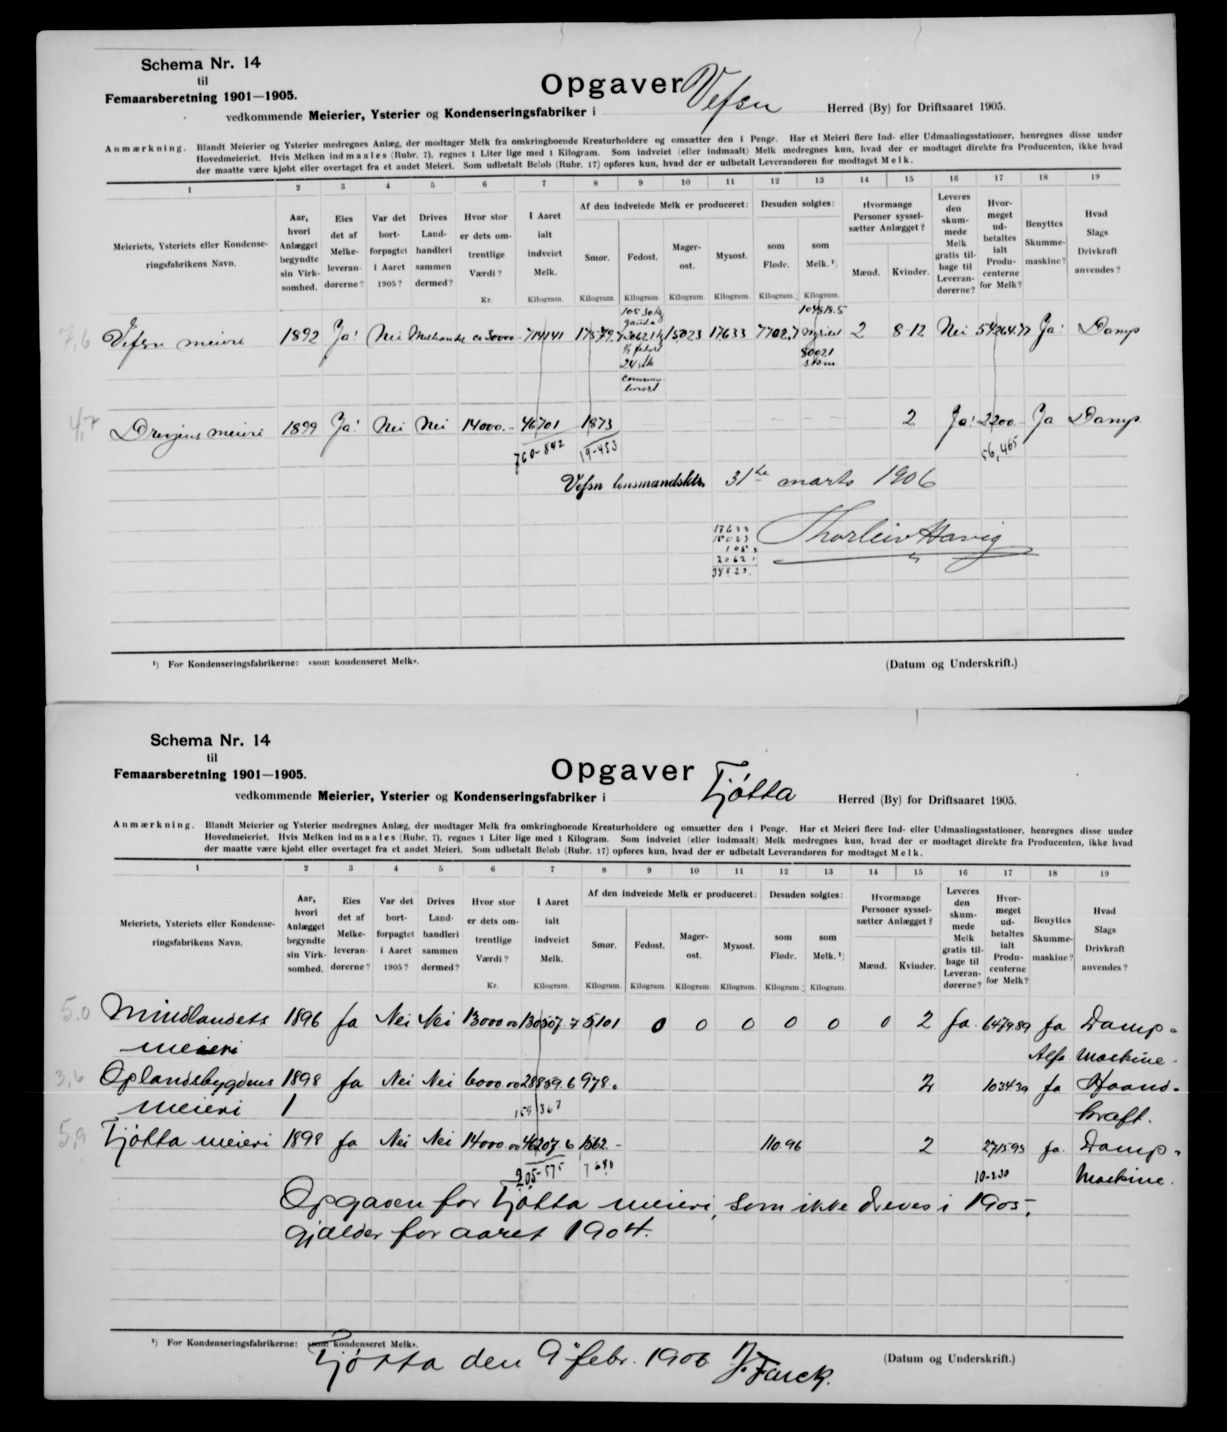 Schema Nr. 14
til
Femaarsberetning 1901—1905.
Opgaver
vedkommende Meierier, Ysterier og Kondenseringsfabriker i Vefsn Herred (By) for Driftsaaret 1905.
Anmærkning. Blandt Meierier og Ysterier medregnes Anlæg, der modtager Melk fra omkringboende Kreaturholdere og omsætter den i Penge. Har et Meieri flere Ind- eller Udmaalingsstationer, henregnes disse under
Hovedmeieriet. Hvis Melken indmaales (Rubr. 7), regnes 1 Liter lige med 1 Kilogram. Som indveiet (eller indmaalt) Melk medregnes kun, hvad der er modtaget direkte fra Producenten, ikke hvad
der maatte være kjøbt eller overtaget fra et andet Meieri. Som udbetalt Beløb (Rubr. 17) opføres kun, hvad der er udbetalt Leverandøren for modtaget Melk.
1 2 3 4 5 6 7 8 9 10 11 12 13 14 15 16 17 18 19
Meieriets, Ysteriets eller Kondenseringsfabrikens Navn.
Aar, hvori Anlægget begyndte sin Virksomhed.
Eies det af Melkeleverandørerne?
Var det bortforpagtet i Aaret 1905?
Drives Landhandleri sammen dermed?
Hvor stor er dets omtrentlige Værdi? Kr.
I Aaret ialt indveiet Melk. Kilogram.
Af den indveiede Melk er produceret:
Smør. Kilogram.
Fedost. Kilogram.
Magerost. Kilogram.
Mysost. Kilogram.
Desuden solgtes:
som Fløde. Kilogram.
som Melk. ¹) Kilogram.
Hvormange Personer sysselsætter Anlægget?
Mænd.
Kvinder.
Leveres den skummede Melk gratis tilbage til Leverandørerne?
Hvormeget udbetaltes ialt Producenterne for Melk?
Benyttes Skummemaskine?
Hvad Slags Drivkraft anvendes?
7,6 Vefsn meieri 1892 Ja! Nei 714141 15023 17633 7702,7 2 8-12 Nei 54264.77 Ja! Damp
4,7 Drevjens meieri 1899 Ja! Nei Nei 14000.- 46701 1873 2 Ja! 2200 Ja Damp
760-842 19-453 56,465
Vefsn lensmandsktr. 31te marts 1906
Thorleiv Havig
¹) For Kondenseringsfabrikerne: «som kondenseret Melk».
(Datum og Underskrift.)
Schema Nr. 14
til
Femaarsberetning 1901—1905.
Opgaver
vedkommende Meierier, Ysterier og Kondenseringsfabriker i Tjøtta Herred (By) for Driftsaaret 1905.
Anmærkning. Blandt Meierier og Ysterier medregnes Anlæg, der modtager Melk fra omkringboende Kreaturholdere og omsætter den i Penge. Har et Meieri flere Ind- eller Udmaalingsstationer, henregnes disse under
Hovedmeieriet. Hvis Melken indmaales (Rubr. 7), regnes 1 Liter lige med 1 Kilogram. Som indveiet (eller indmaalt) Melk medregnes kun, hvad der er modtaget direkte fra Producenten, ikke hvad
der maatte være kjøbt eller overtaget fra et andet Meieri. Som udbetalt Beløb (Rubr. 17) opføres kun, hvad der er udbetalt Leverandøren for modtaget Melk.
1 2 3 4 5 6 7 8 9 10 11 12 13 14 15 16 17 18 19
Meieriets, Ysteriets eller Kondenseringsfabrikens Navn.
Aar, hvori Anlægget begyndte sin Virksomhed.
Eies det af Melkeleverandørerne?
Var det bortforpagtet i Aaret 1905?
Drives Landhandleri sammen dermed?
Hvor stor er dets omtrentlige Værdi? Kr.
I Aaret ialt indveiet Melk. Kilogram.
Af den indveiede Melk er produceret:
Smør. Kilogram.
Fedost. Kilogram.
Magerost. Kilogram.
Mysost. Kilogram.
Desuden solgtes:
som Fløde. Kilogram.
som Melk. ¹) Kilogram.
Hvormange Personer sysselsætter Anlægget?
Mænd.
Kvinder.
Leveres den skummede Melk gratis tilbage til Leverandørerne?
Hvormeget udbetaltes ialt Producenterne for Melk?
Benyttes Skummemaskine?
Hvad Slags Drivkraft anvendes?
5.0 Mindlandets 1896 ja Nei Nei 13000 00 130507.7 5101 0 0 0 0 0 0 2 ja 6479 89 ja Damp-
meieri Alfa Maskine.
3,6 Oplandsbygdens 1898 ja Nei Nei 6000.00 28859.6 978. 2 1034 39 ja Haand-
meieri 159 367 kraft.
5,9 Tjøtta meieri 1898 ja Nei Nei 14000.00 46207.6 1562.- 110.96 2 2715 93 ja. Damp-
205-575 7 641 10-230 Maskine.
Opgaven for Tjøtta meieri, som ikke dreves i 1905,
gjælder for aaret 1904.
¹) For Kondenseringsfabrikerne: «som kondenseret Melk».
Tjøtta den 9 febr. 1906
(Datum og Underskrift.)